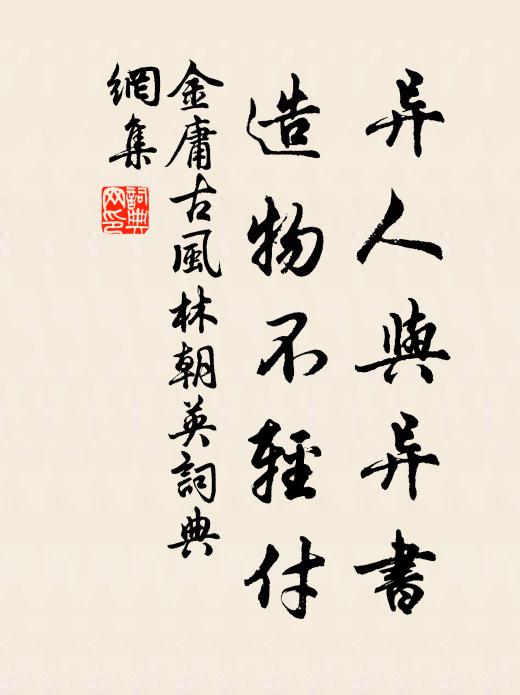 异人與异書
造物不輕付
金庸古風林朝英詞典
網集
詞典
网印